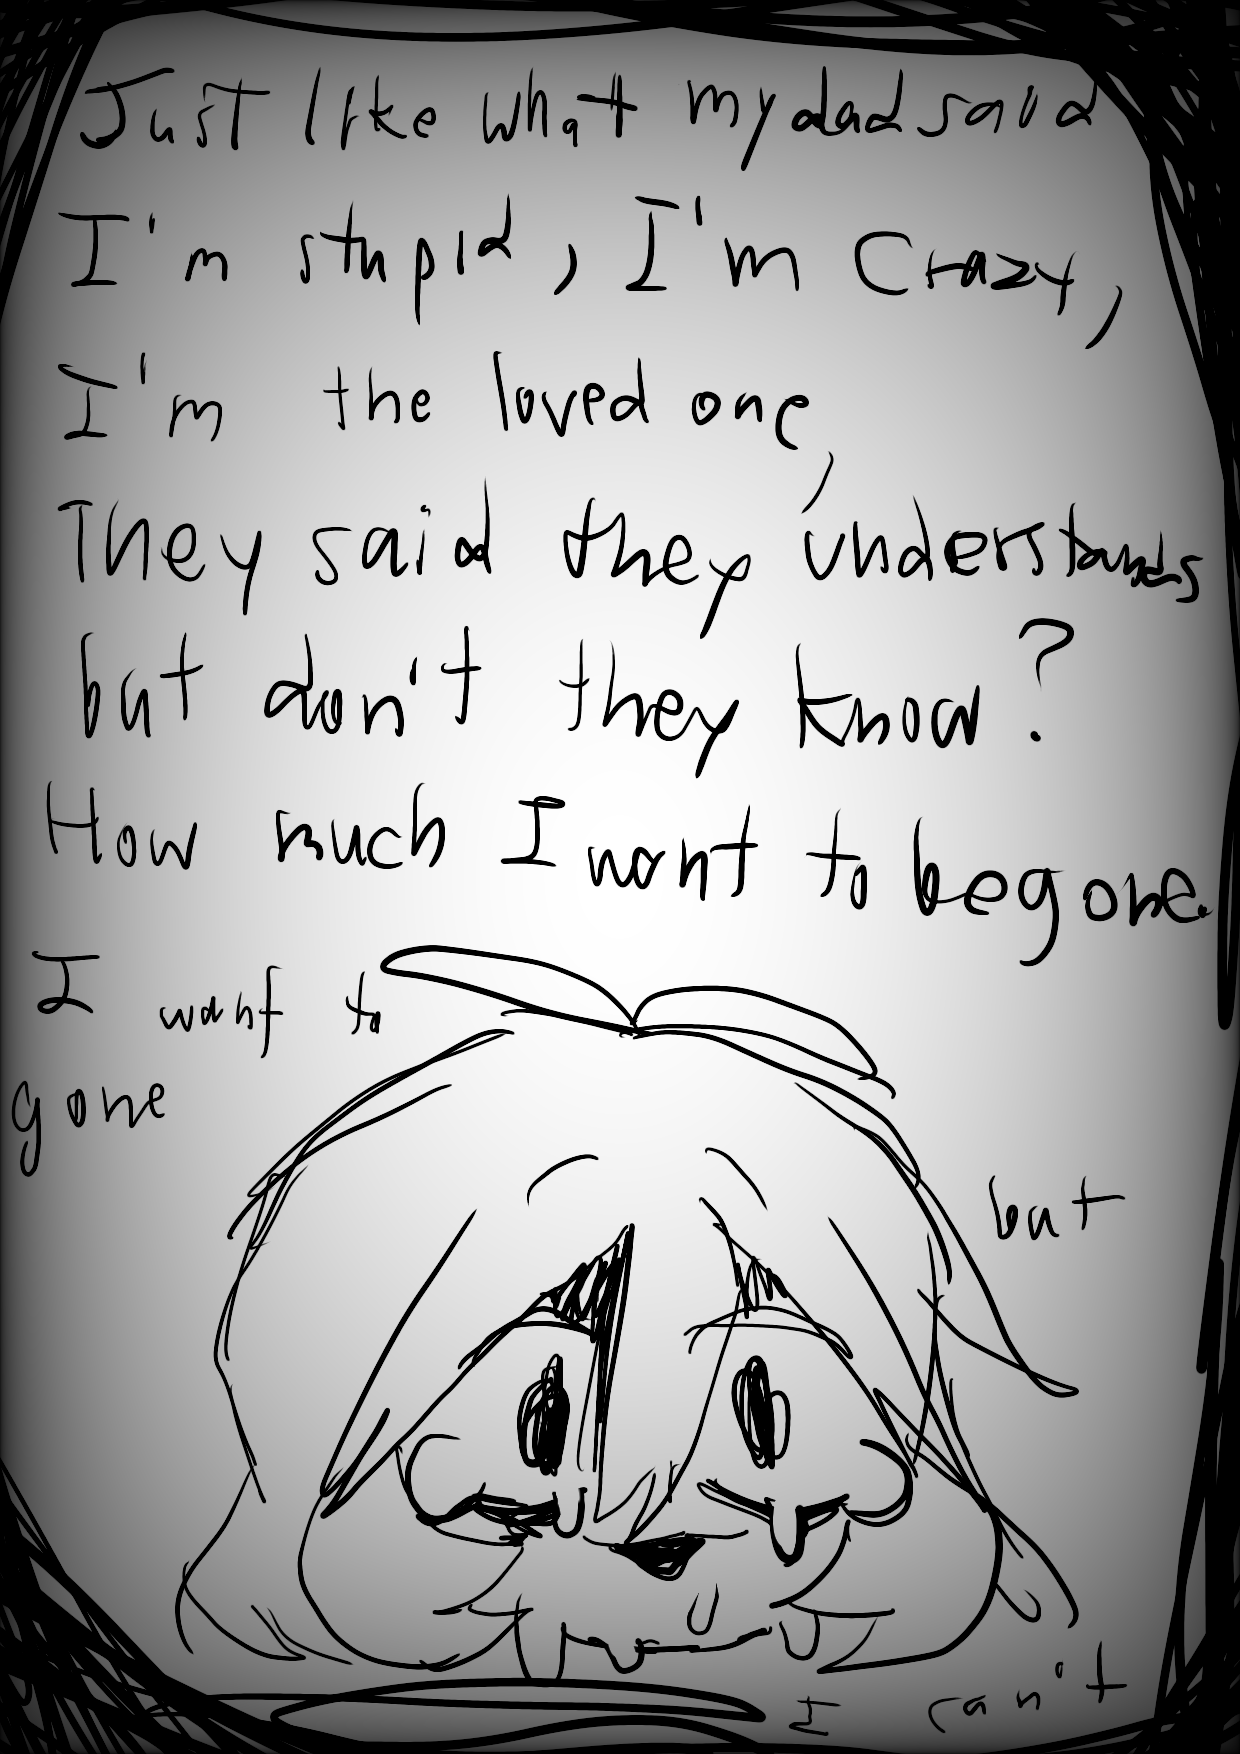 Just like what my dad said
I'm stupid, I'm crazy,
I'm the loved one,
They said they understands
but don't they know?
How much I want to be gone.
I want to
gone
but
I can't